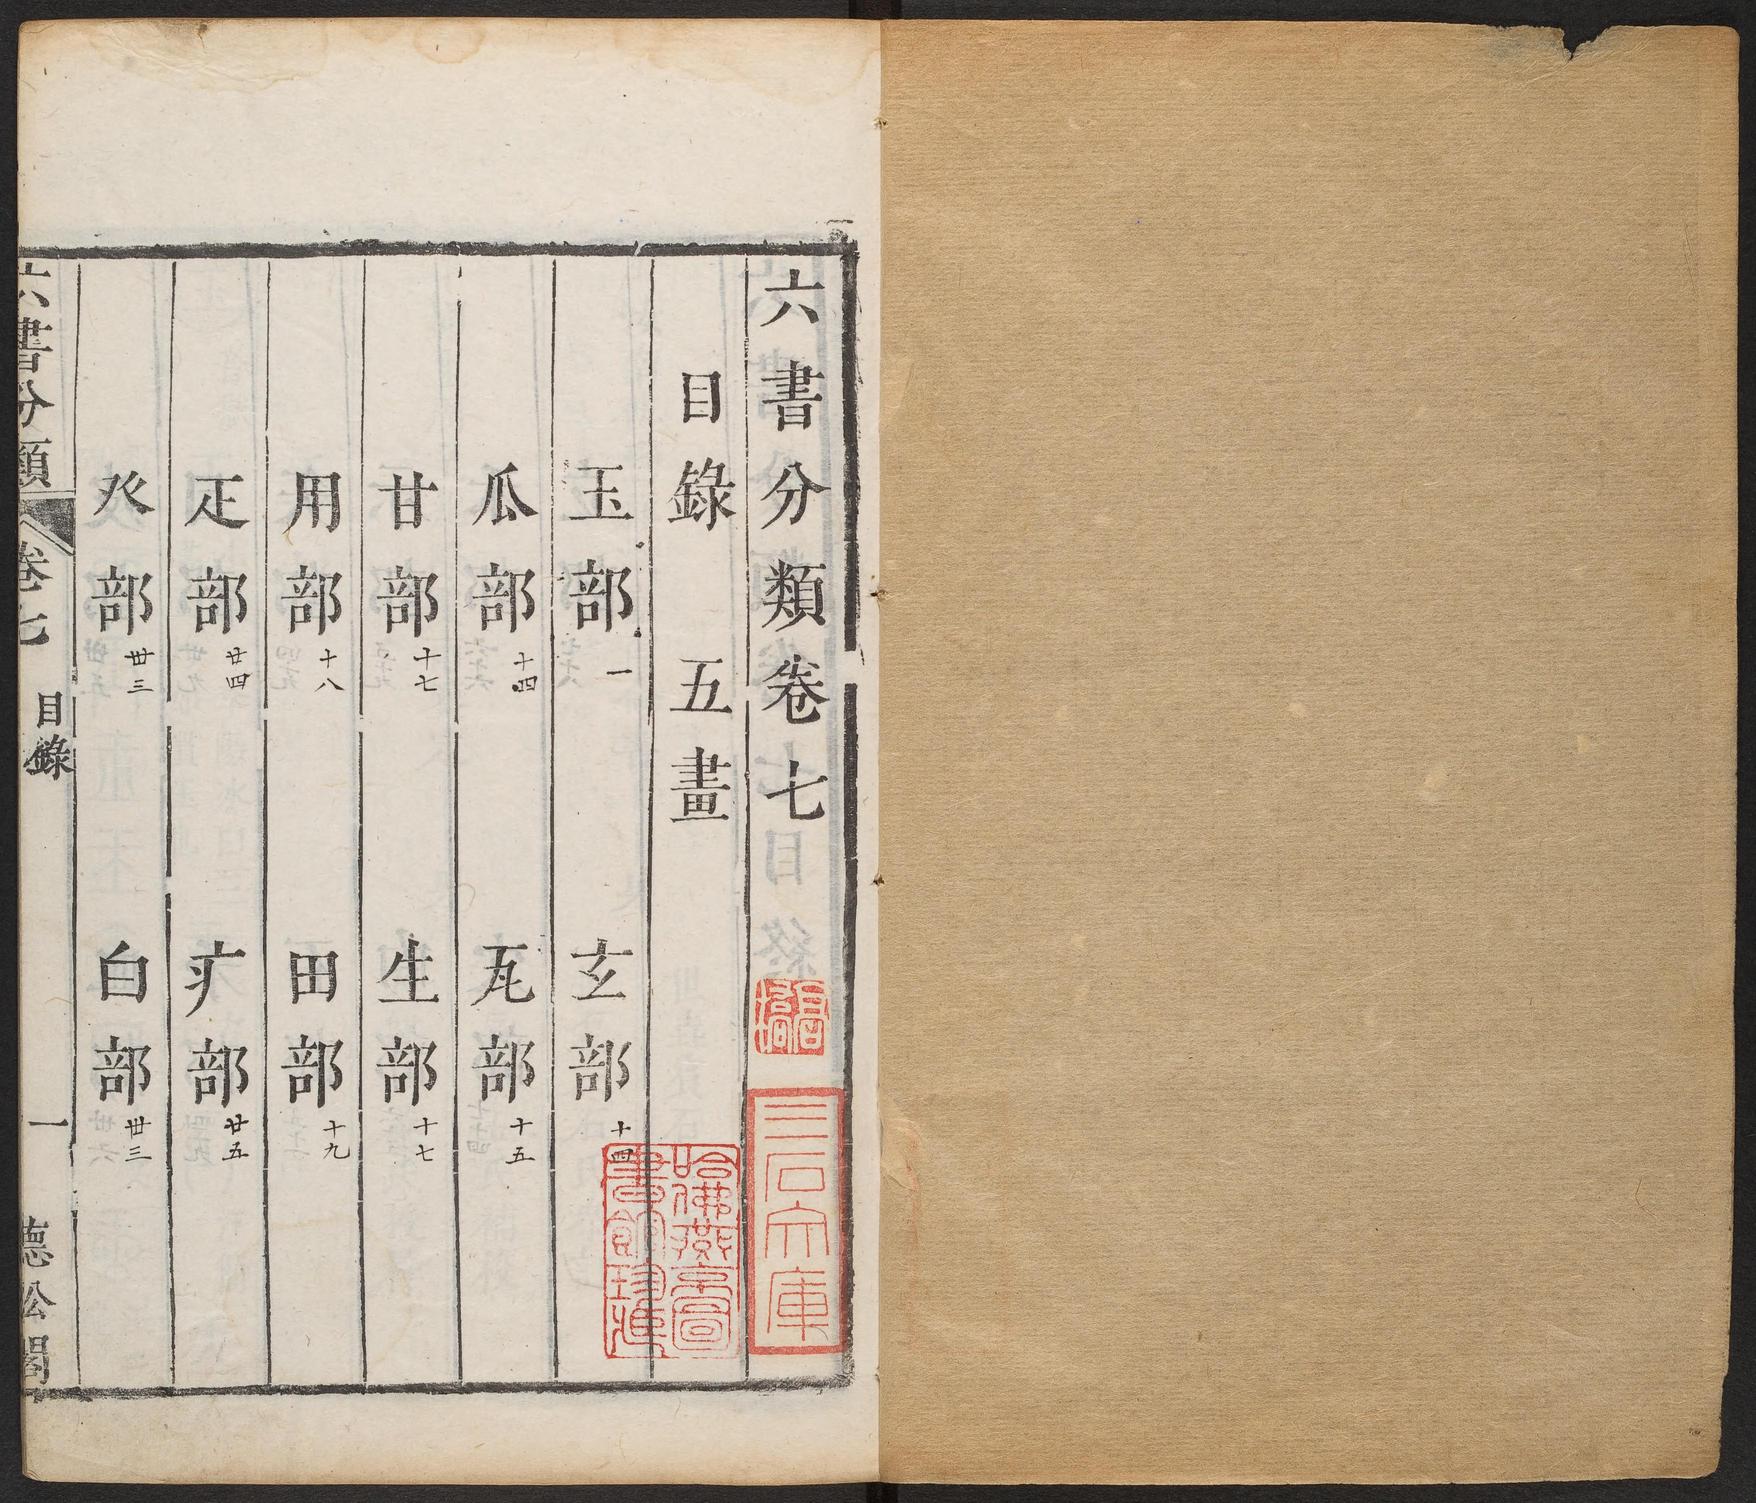 六書分類卷七
目錄 五畫
玉部 一 玄部 十四
瓜部 十四 瓦部 十五
甘部 十七 生部 十七
用部 十八 田部 十九
疋部 廿四 疒部 廿五
癶部 卅三 白部 卅三
六書分類 卷七 目錄 一 德松閣
三石六庫
哈佛燕京圖
書館珍藏